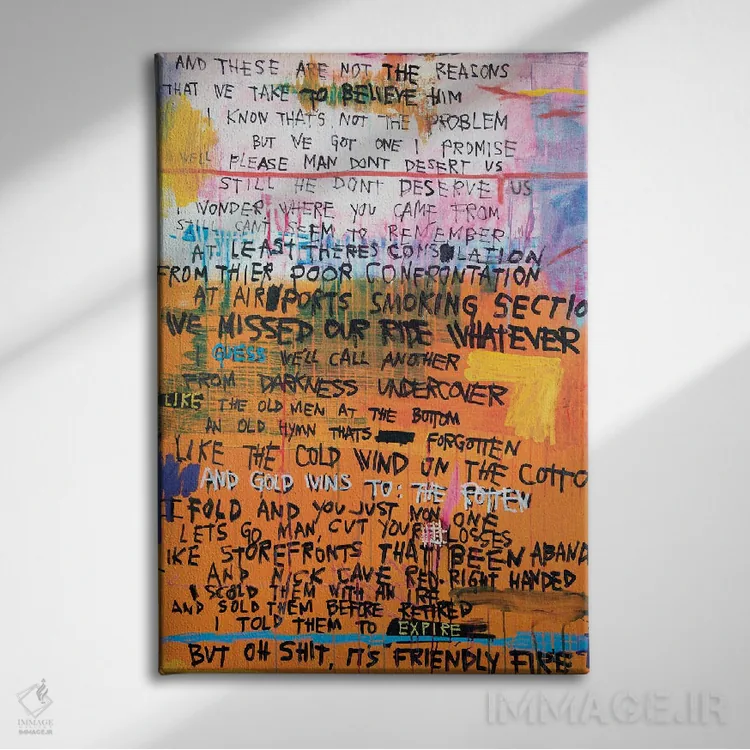 AND THESE ARE NOT THE REASONS
THAT WE TAKE TO BELIEVE HIM
I KNOW THATS NOT THE PROBLEM
BUT WE GOT ONE I PROMISE
WELL PLEASE MAN DONT DESERT US
STILL HE DONT DESERVE US
I WONDER WHERE YOU CAME FROM
STILL CANT SEEM TO REMEMBER
AT LEAST THERES CONSOLATION
FROM THIER POOR CONFRONTATION
AT AIRPORTS SMOKING SECTIO
WE MISSED OUR RIDE WHATEVER
GUESS WE'LL CALL ANOTHER
FROM DARKNESS UNDERCOVER
LIKE THE OLD MEN AT THE BOTTOM
AN OLD HYMN THATS FORGOTTEN
LIKE THE COLD WIND ON THE COTTO
AND GOLD WINS TO: THE ROTTEN
I FOLD AND YOU JUST WON ONE
LETS GO MAN, CUT YOUR LOSSES
IKE STOREFRONTS THAT BEEN ABAND
AND NICK CAVE RED RIGHT HANDED
I SCOLD THEM WITH AN IRE
AND SOLD THEM BEFORE RETIRED
I TOLD THEM TO EXPIRE
BUT OH SHIT, ITS FRIENDLY FIRE
IMMAGE
IMMAGE.IR
IMMAGE.IR